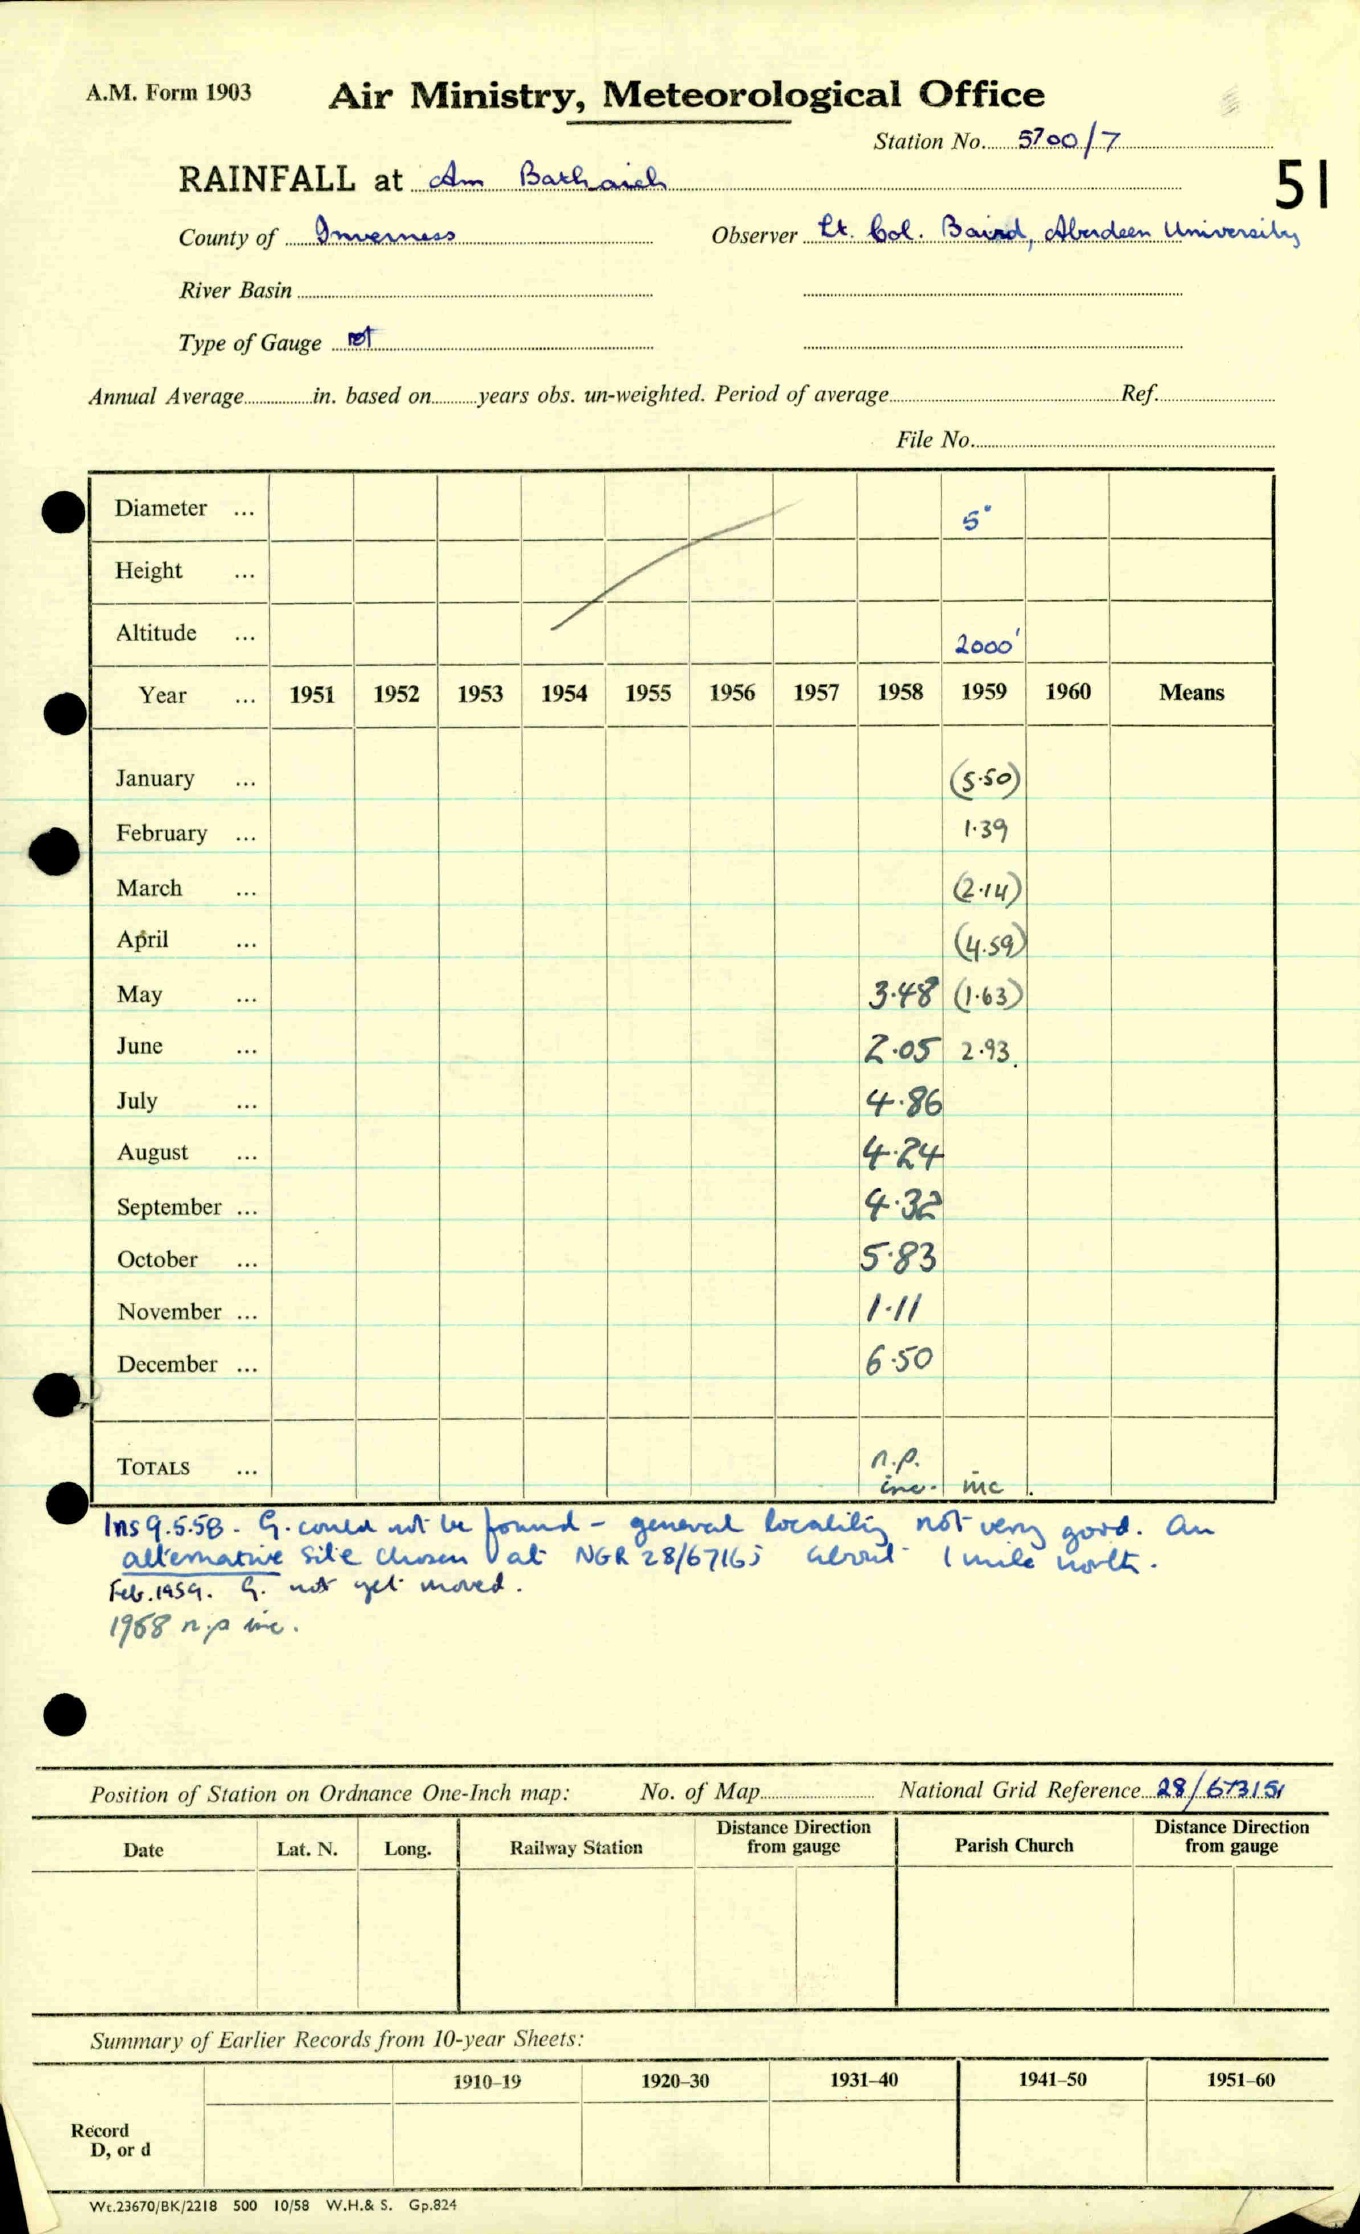 A.M. Form 1903
Air Ministry, Meteorological Office
Station No. 5700/7
51
RAINFALL at Am Bathaich
County of Inverness Observer Lt. Col. Baird, Aberdeen University
River Basin
Type of Gauge
Annual Average in. based on years obs. un-weighted. Period of average Ref.
File No.
Diameter ... 5"
Height ...
Altitude ... 2000'
Year ... 1951 1952 1953 1954 1955 1956 1957 1958 1959 1960 Means
January ... (5.50)
February ... 1.39
March ... (2.14)
April ... (4.59)
May ... 3.48 (1.63)
June ... 2.05 2.93
July ... 4.86
August ... 4.24
September ... 4.32
October ... 5.83
November ... 1.11
December ... 6.50
n.p.
TOTALS ... inc. inc
Ins 9.5.58. G. could not be found - general locality not very good. An
alternative site chosen at NGR 28/67165 about 1 mile north.
Feb. 1959. G. not yet moved.
1958 n.p inc.
Position of Station on Ordnance One-Inch map: No. of Map National Grid Reference 28/673151
Date Lat. N. Long. Railway Station Distance Direction from gauge Parish Church Distance Direction from gauge
Summary of Earlier Records from 10-year Sheets:
1910–19 1920–30 1931–40 1941–50 1951–60
Record
D, or d
Wt.23670/BK/2218 500 10/58 W.H.& S. Gp.824